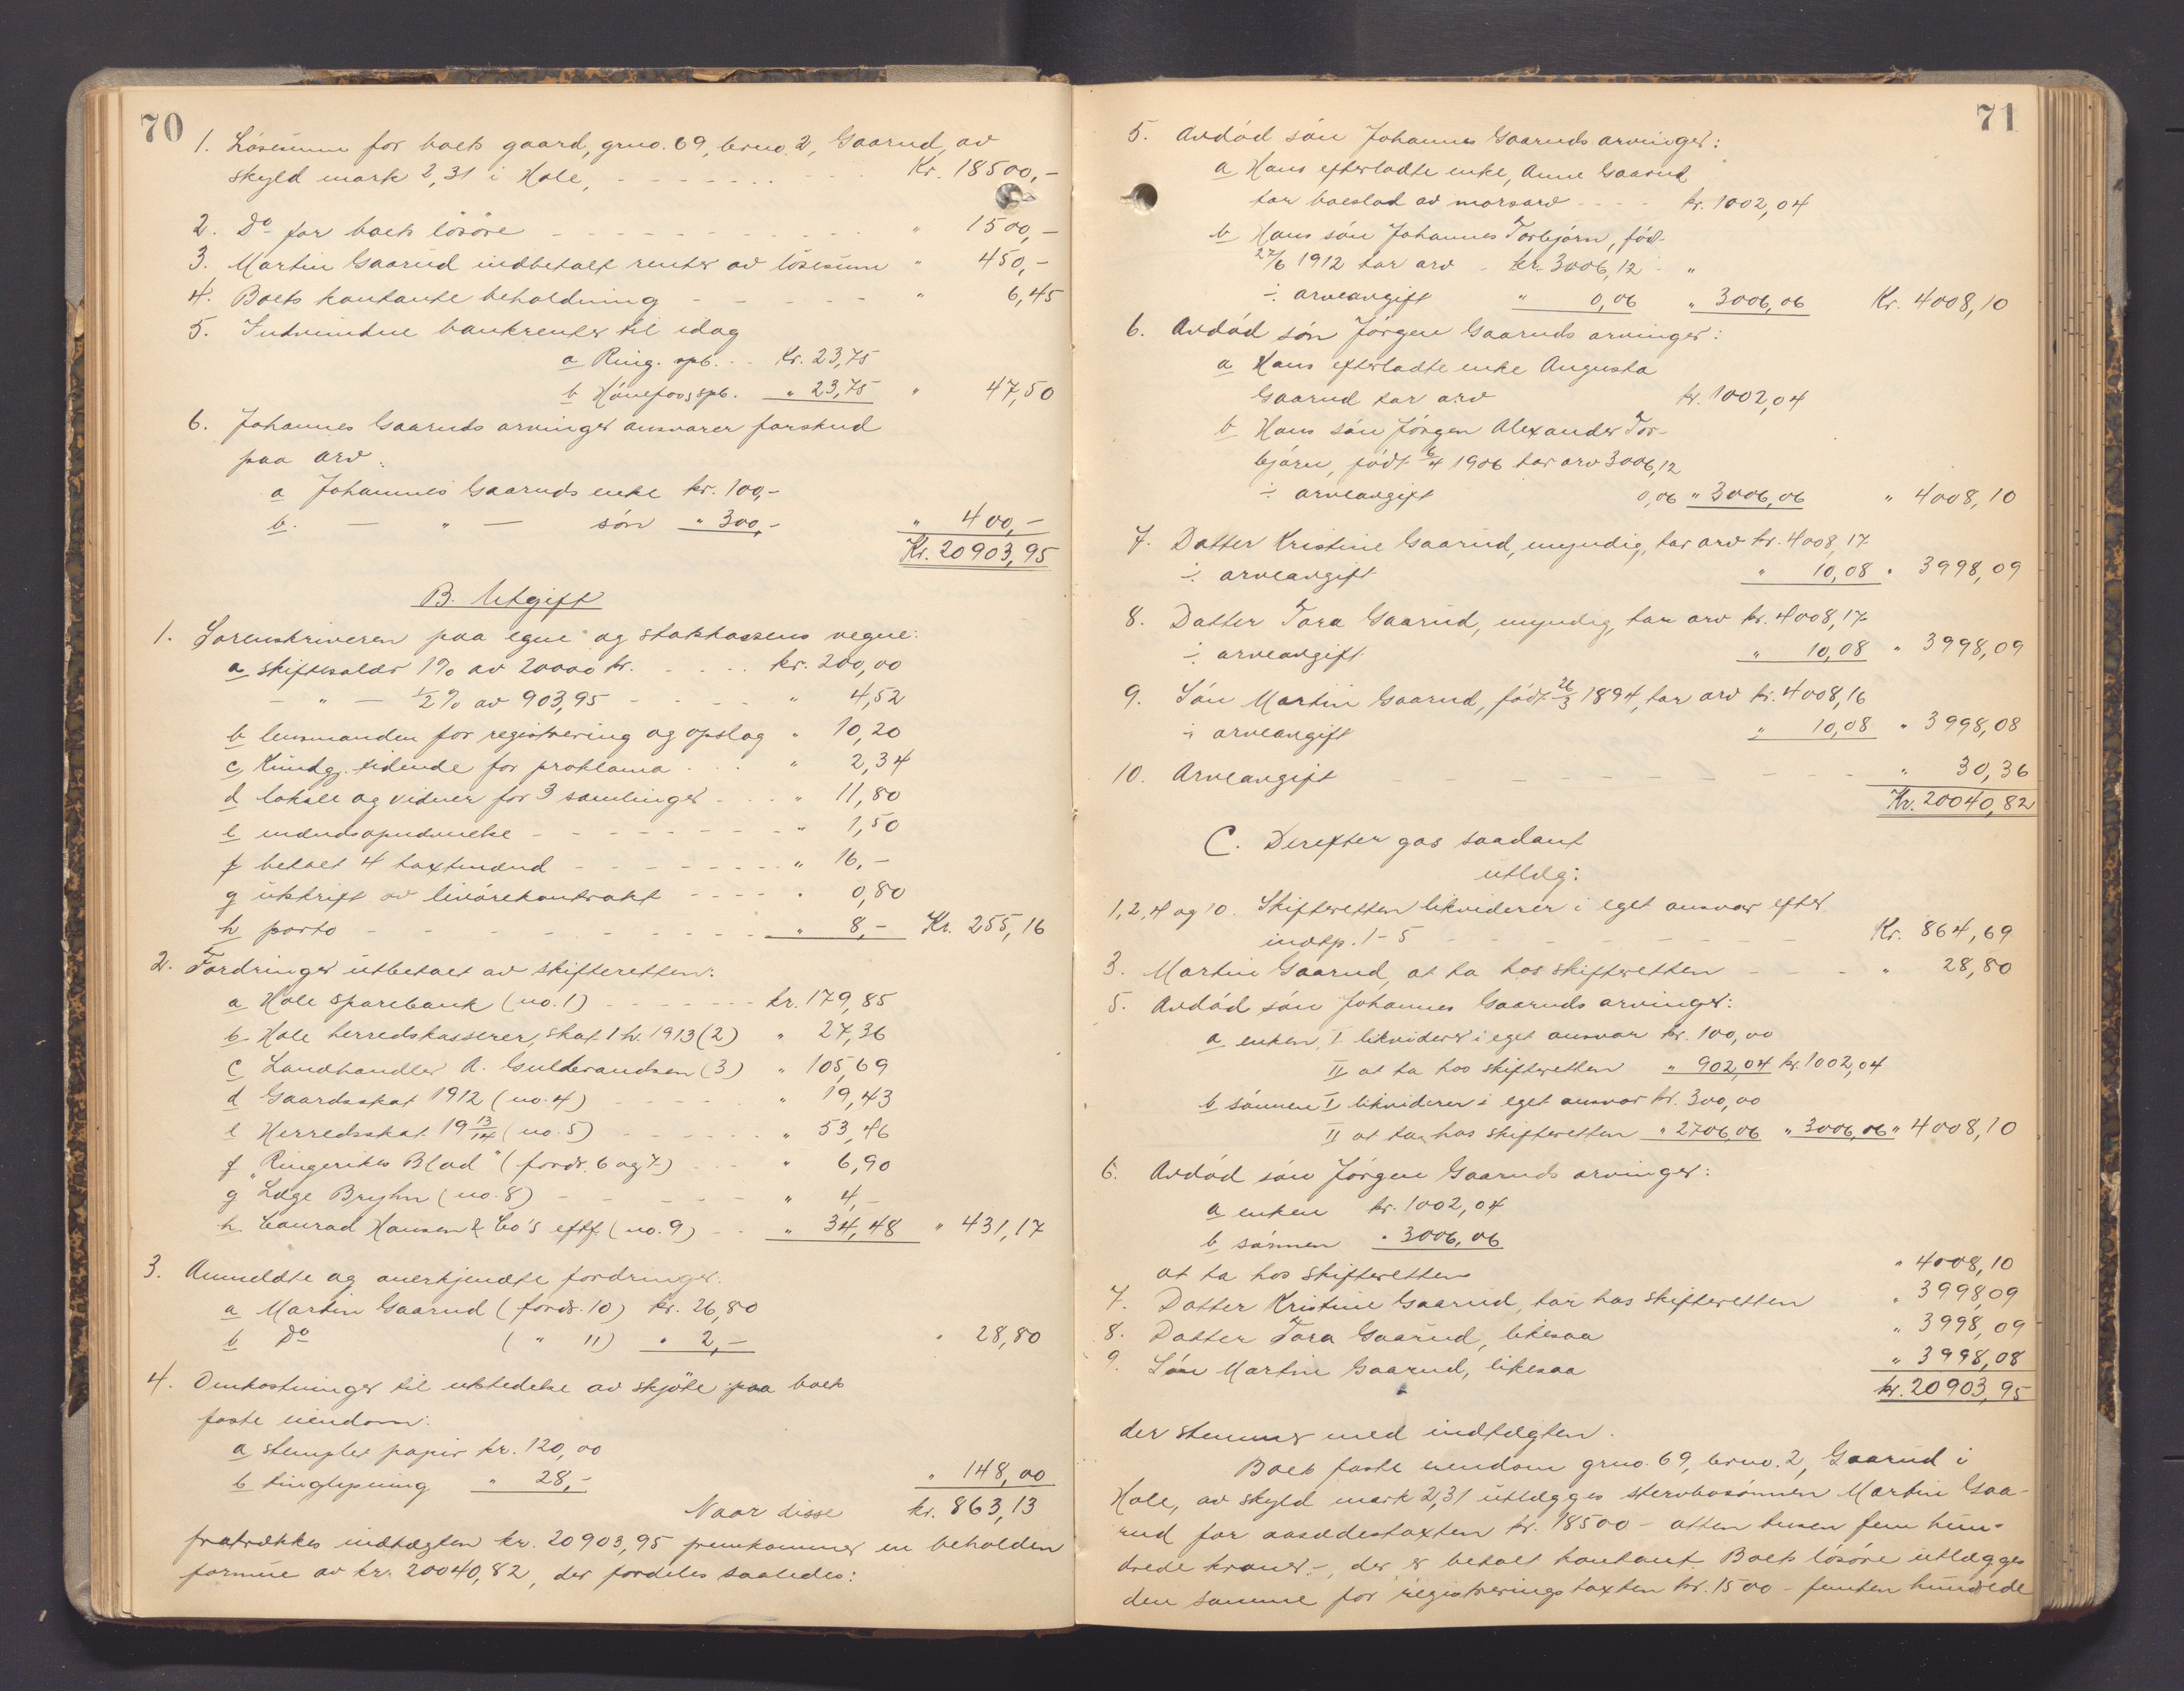 70
1. Løsesum for boets gaard, grno. 69, brno. 2, Gaarud, av
skyld mark 2,31 i Hole, - - - - - - - Kr. 18500,-
2. Do for boets løsøre - - - - - - - " 1500,-
3. Martin Gaarud indbetalt renter av løsesum " 450,-
4. Boets kontante beholdning - - - - - " 6,45
5. Indvundne bankrenter til idag
a Ring. spb. - - Kr. 23,75
b Hønefoss spb. " 23,75 " 47,50
6. Johannes Gaaruds arvinger ansvarer forskud
paa arv:
a Johannes Gaaruds enke kr. 100,-
b. — " — søn " 300,- " 400,-
Kr. 20903,95
B. Utgift
1. Sorenskriveren paa egne og statskassens vegne:
a skiftesalær 1% av 20000 kr. - - - - kr. 200,00
- " - ½% av 903,95 - - - - " 4,52
b lensmanden for registrering og opslag " 10,20
c, Kundg. tidende for proklama - - - " 2,34
d lokale og vidner for 3 samlinger - - - " 11,80
e mændsopnævnelse - - - - - - - " 1,50
f betalt 4 taxtmænd - - - - - - - " 16,-
g utskrift av livørekontrakt - - - - " 0,80
h porto - - - - - - - " 8,- Kr. 255,16
2. Fordringer utbetalt av skifteretten:
a Hole sparebank (no. 1) - - - - - - kr. 179,85
b. Hole herredskasserer, skat 1 h. 1913 (2) " 27,36
c Landhandler A. Gulbrandsen (3) " 105,69
d Gaardsskat 1912 (no. 4) - - - - - " 19,43
e Herredsskat 19 13/14 (no. 5) - - - - - " 53,46
f "Ringerikes Blad" (fordr. 6 og 7) - - - " 6,90
g Læge Bryhn (no. 8) - - - - - - " 4,-
h. Conrad Hansen & Co's eftf. (no. 9) - - " 34,48 " 431,17
3. Anmeldte og anerkjendte fordringer:
a Martin Gaarud (fordr. 10) kr. 26,80
b Do ( " 11) " 2,- " 28,80
4. Omkostninger til utstedelse av skjøte paa boets
faste eiendom:
a stemplet papir kr. 120,00
b tinglysning " 28,- " 148,00
Naar disse kr. 863,13
fratrækkes indtægten kr. 20903,95 fremkommer en beholden
formue av kr. 20040,82, der fordeles saaledes:
71
5. Avdød søn Johannes Gaaruds arvinger:
a Hans efterladte enke, Anne Gaarud
tar boeslod av morsarv - - - - kr. 1002,04
b Hans søn Johannes Torbjørn, fød-
27/6 1912 tar arv - kr. 3006,12 "
÷ arveavgift " 0,06 " 3006,06 Kr. 4008,10
6. Avdød søn Jørgen Gaaruds arvinger:
a Hans efterladte enke Augusta
Gaarud tar arv kr. 1002,04
b Hans søn Jörgen Alexander Tor-
bjørn, født 6/4 1906 tar arv 3006,12
÷ arveavgift 0,06 " 3006,06 " 4008,10
7. Datter Kristine Gaarud, myndig, tar arv kr. 4008,17
÷ arveavgift " 10,08 " 3998,09
8. Datter Tora Gaarud, myndig, tar arv kr. 4008,17
÷ arveavgift " 10,08 " 3998,09
9. Søn Martin Gaarud, født 26/3 1894, tar arv kr. 4008,16
÷ arveavgift " 10,08 " 3998,08
10. Arveavgift - - - - - - - - " 30,36
Kr. 20040,82
C. Derefter gas saadant
utlæg:
1, 2, 4 og 10. Skifteretten likviderer i eget ansvar efter
indtp. 1-5 - - - - - - - - Kr. 864,69
3. Martin Gaarud, at ta hos skifteretten - - - " 28,80
5. Avdød søn Johannes Gaaruds arvinger:
a enken, I likviderer i eget ansvar kr. 100,00
II at ta hos skifteretten " 902,04 kr. 1002,04
b sønnen I likviderer i eget ansvar kr. 300,00
II at ta hos skifteretten " 2706,06 " 3006,06 " 4008,10
6. Avdød søn Jørgen Gaaruds arvinger:
a enken kr. 1002,04
b sønnen " 3006,06
at ta hos skifteretten " 4008,10
7. Datter Kristine Gaarud, tar hos skifteretten " 3998,09
8. Datter Tora Gaarud, likesaa " 3998,09
9. Søn Martin Gaarud, likesaa " 3998,08
kr. 20903,95
der stemmer med indtægten.
Boets faste eiendom grno. 69, brno. 2, Gaarud i
Hole, av skyld mark 2,31 utlægges stervbosønnen Martin Gaa-
rud for aasædestaxten kr. 18500 - atten tusen fem hun-
drede kroner -, der er betalt kontant. Boets løsøre utlægges
den samme for registreringstaxten kr. 1500 - femten hundrede